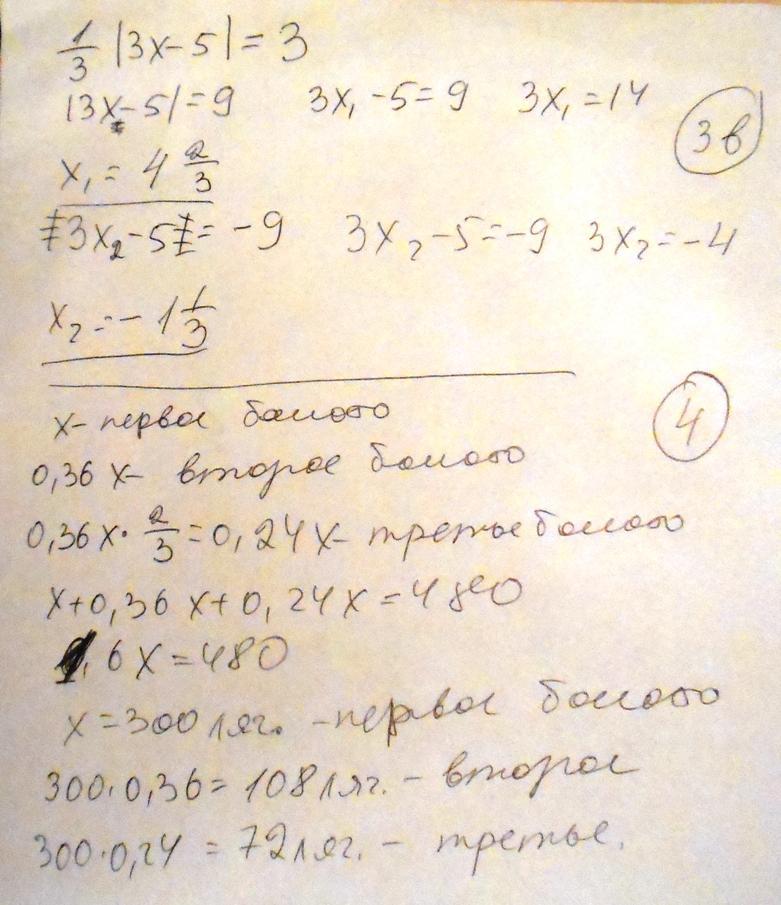 1/3 |3x-5| = 3
|3x-5| = 9 3x₁-5=9 3x₁=14
3в
x₁ = 4 2/3
3x₂-5 = -9 3x₂-5=-9 3x₂=-4
x₂ = -1 1/3
4
x- первое болото
0,36 x- второе болото
0,36x · 2/3 = 0,24x- третье болото
x+0,36x+0,24x=480
1,6x=480
x=300 ляг. - первое болото
300·0,36=108 ляг. - второе
300·0,24=72 ляг. - третье.